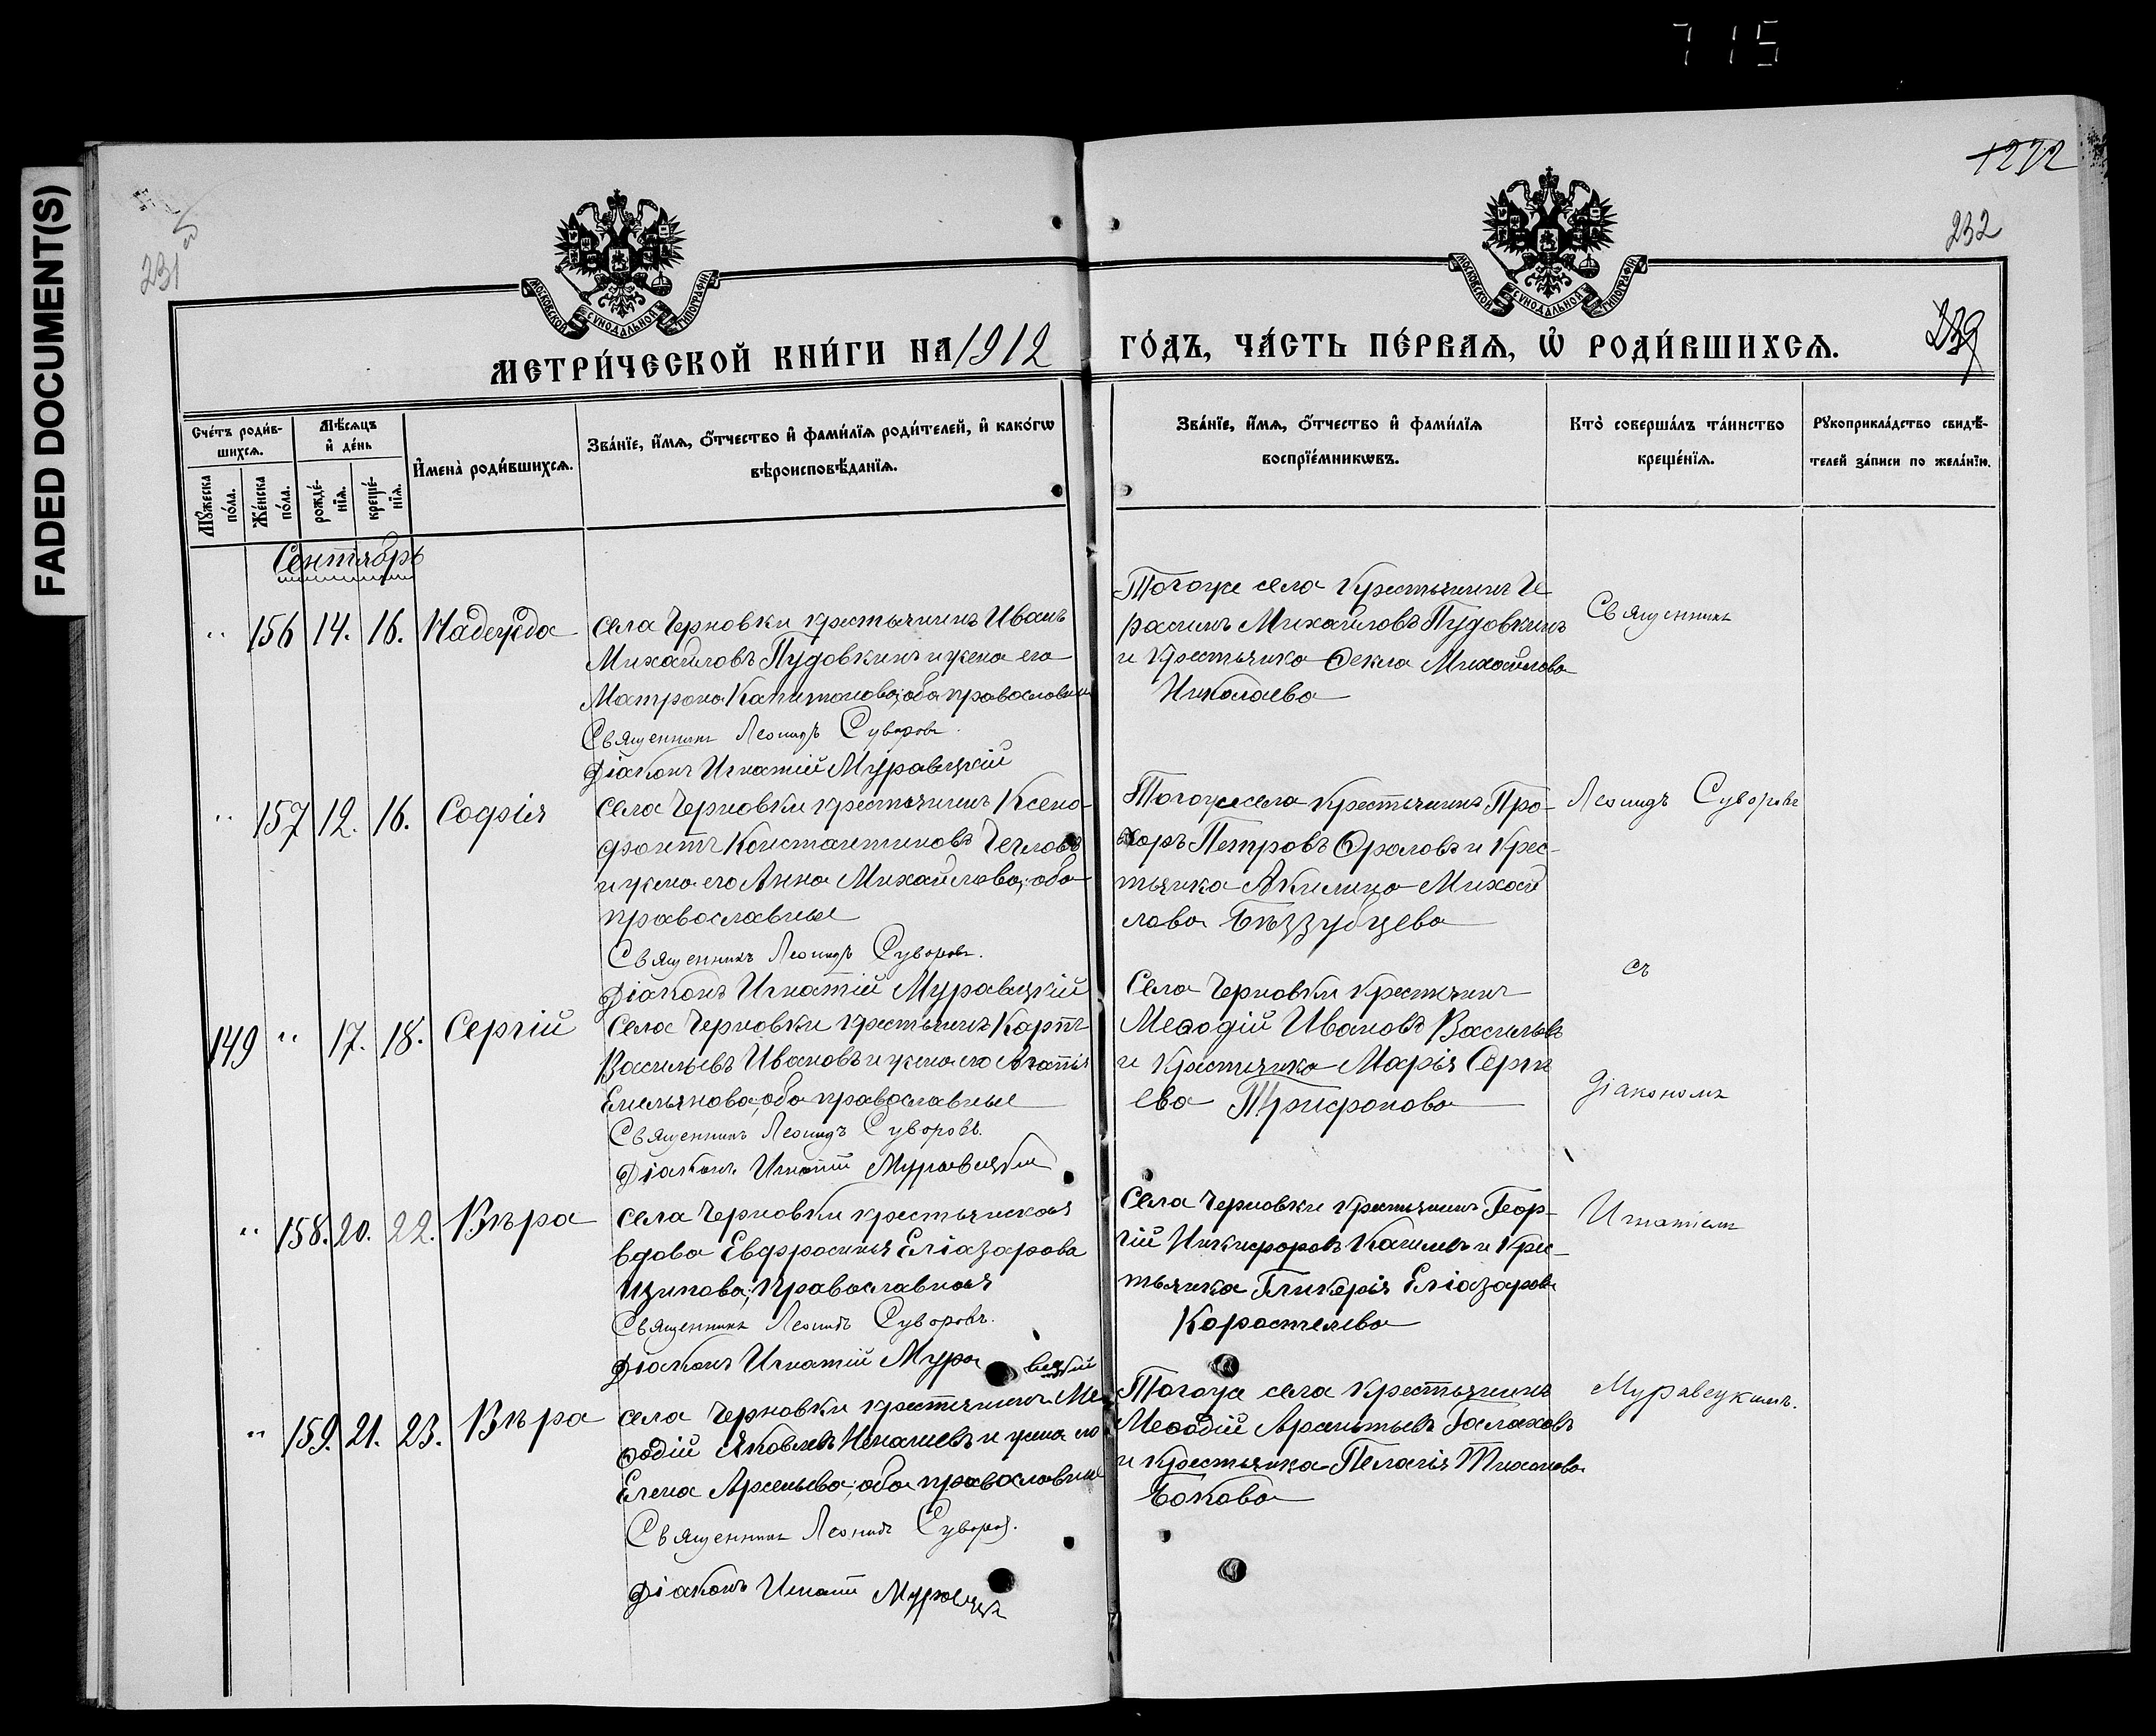 715
FADED DOCUMENT(S)
1272
231
232
239
МОСКОВСКОЙ СѴНОДАЛЬНОЙ ТИПОГРАФІИ
МОСКОВСКОЙ СѴНОДАЛЬНОЙ ТИПОГРАФІИ
МЕТРИ́ЧЕСКОЙ КНИ́ГИ НА 1912 ГО́ДЪ, ЧА́СТЬ ПЕ́РВАѦ, Ѡ҆ РОДИ́ВШИХСѦ.
Сче́тъ роди́в-
шихсѧ.
Мѣ́сѧцъ
и҆ де́нь
Мꙋ́жеска
по́ла.
Же́нска
по́ла.
рожде́-
нїѧ.
креще́-
нїѧ.
И҆мена̀ роди́вшихсѧ.
Зва́нїе, и҆́мѧ, ѻ҆́тчество и҆ фами́лїѧ роди́телей, и҆ како́гѡ
вѣроисповѣ́данїѧ.
Зва́нїе, и҆́мѧ, ѻ҆́тчество и҆ фами́лїѧ
воспрїе́мникѡвъ.
Кто̀ соверша́лъ та́инство
креще́нїѧ.
Рꙋкоприкла́дство свидѣ́-
телей за́писи по жела́нїю.
Сентябрь
" 156 14. 16. Надежда
села Черновки крестьянинъ Иванъ
Михайловъ Пудовкинъ и жена его
Матрона Капитонова; оба православные
Священникъ Леонидъ Суворовъ.
Діаконъ Игнатій Муравецкій
Тогоже села Крестьянинъ Ге
расимъ Михайловъ Пудовкинъ
и Крестьянка Ѳекла Михайлова
Николаева
Священникъ
" 157 12. 16. Софія
села Черновки крестьянинъ Ксено-
фонтъ Константиновъ Чегловъ
и жена его Анна Михайлова; оба
православные
Священникъ Леонидъ Суворовъ.
Діаконъ Игнатій Муравецкій
Тогоже села Крестьянинъ Про-
хоръ Петровъ Фроловъ и Крес-
тьянка Акилина Михай
лова Беззубцева
Леонидъ Суворовъ
съ
149 " 17. 18. Сергій
Села Черновки крестьянинъ Карпъ
Васильевъ Ивановъ и жена его Агапія
Емельянова; оба православные
Священникъ Леонидъ Суворовъ.
Діаконъ Игнатій Муравецкій
Села Черновки Крестьянинъ
Меѳодій Ивановъ Васильевъ
и Крестьянка Марія Серге
ева Трифонова
діакономъ
" 158. 20. 22. Вѣра
села Черновки крестьянская
вдова Евфросинія Еліазарова
православная
Священникъ Леонидъ Суворовъ.
Діаконъ Игнатій Муравецкій
Села Черновки Крестьянинъ Геор-
гій Никифоровъ и Крес-
тьянка Гликерія Еліазарова
Коростелева
Игнатіемъ
" 159. 21. 23. Вѣра
села Черновки крестьянинъ Ме
ѳодій Яковлевъ Ненашевъ и жена его
Елена Арсеньева; оба православные
Священникъ Леонидъ Суворовъ.
Діаконъ Игнатій Муравецкій
Тогоже села Крестьянинъ
Меѳодій Арсентьевъ Галаховъ
и Крестьянка Пелагія Тихонова
Бокова
Муравецкимъ.